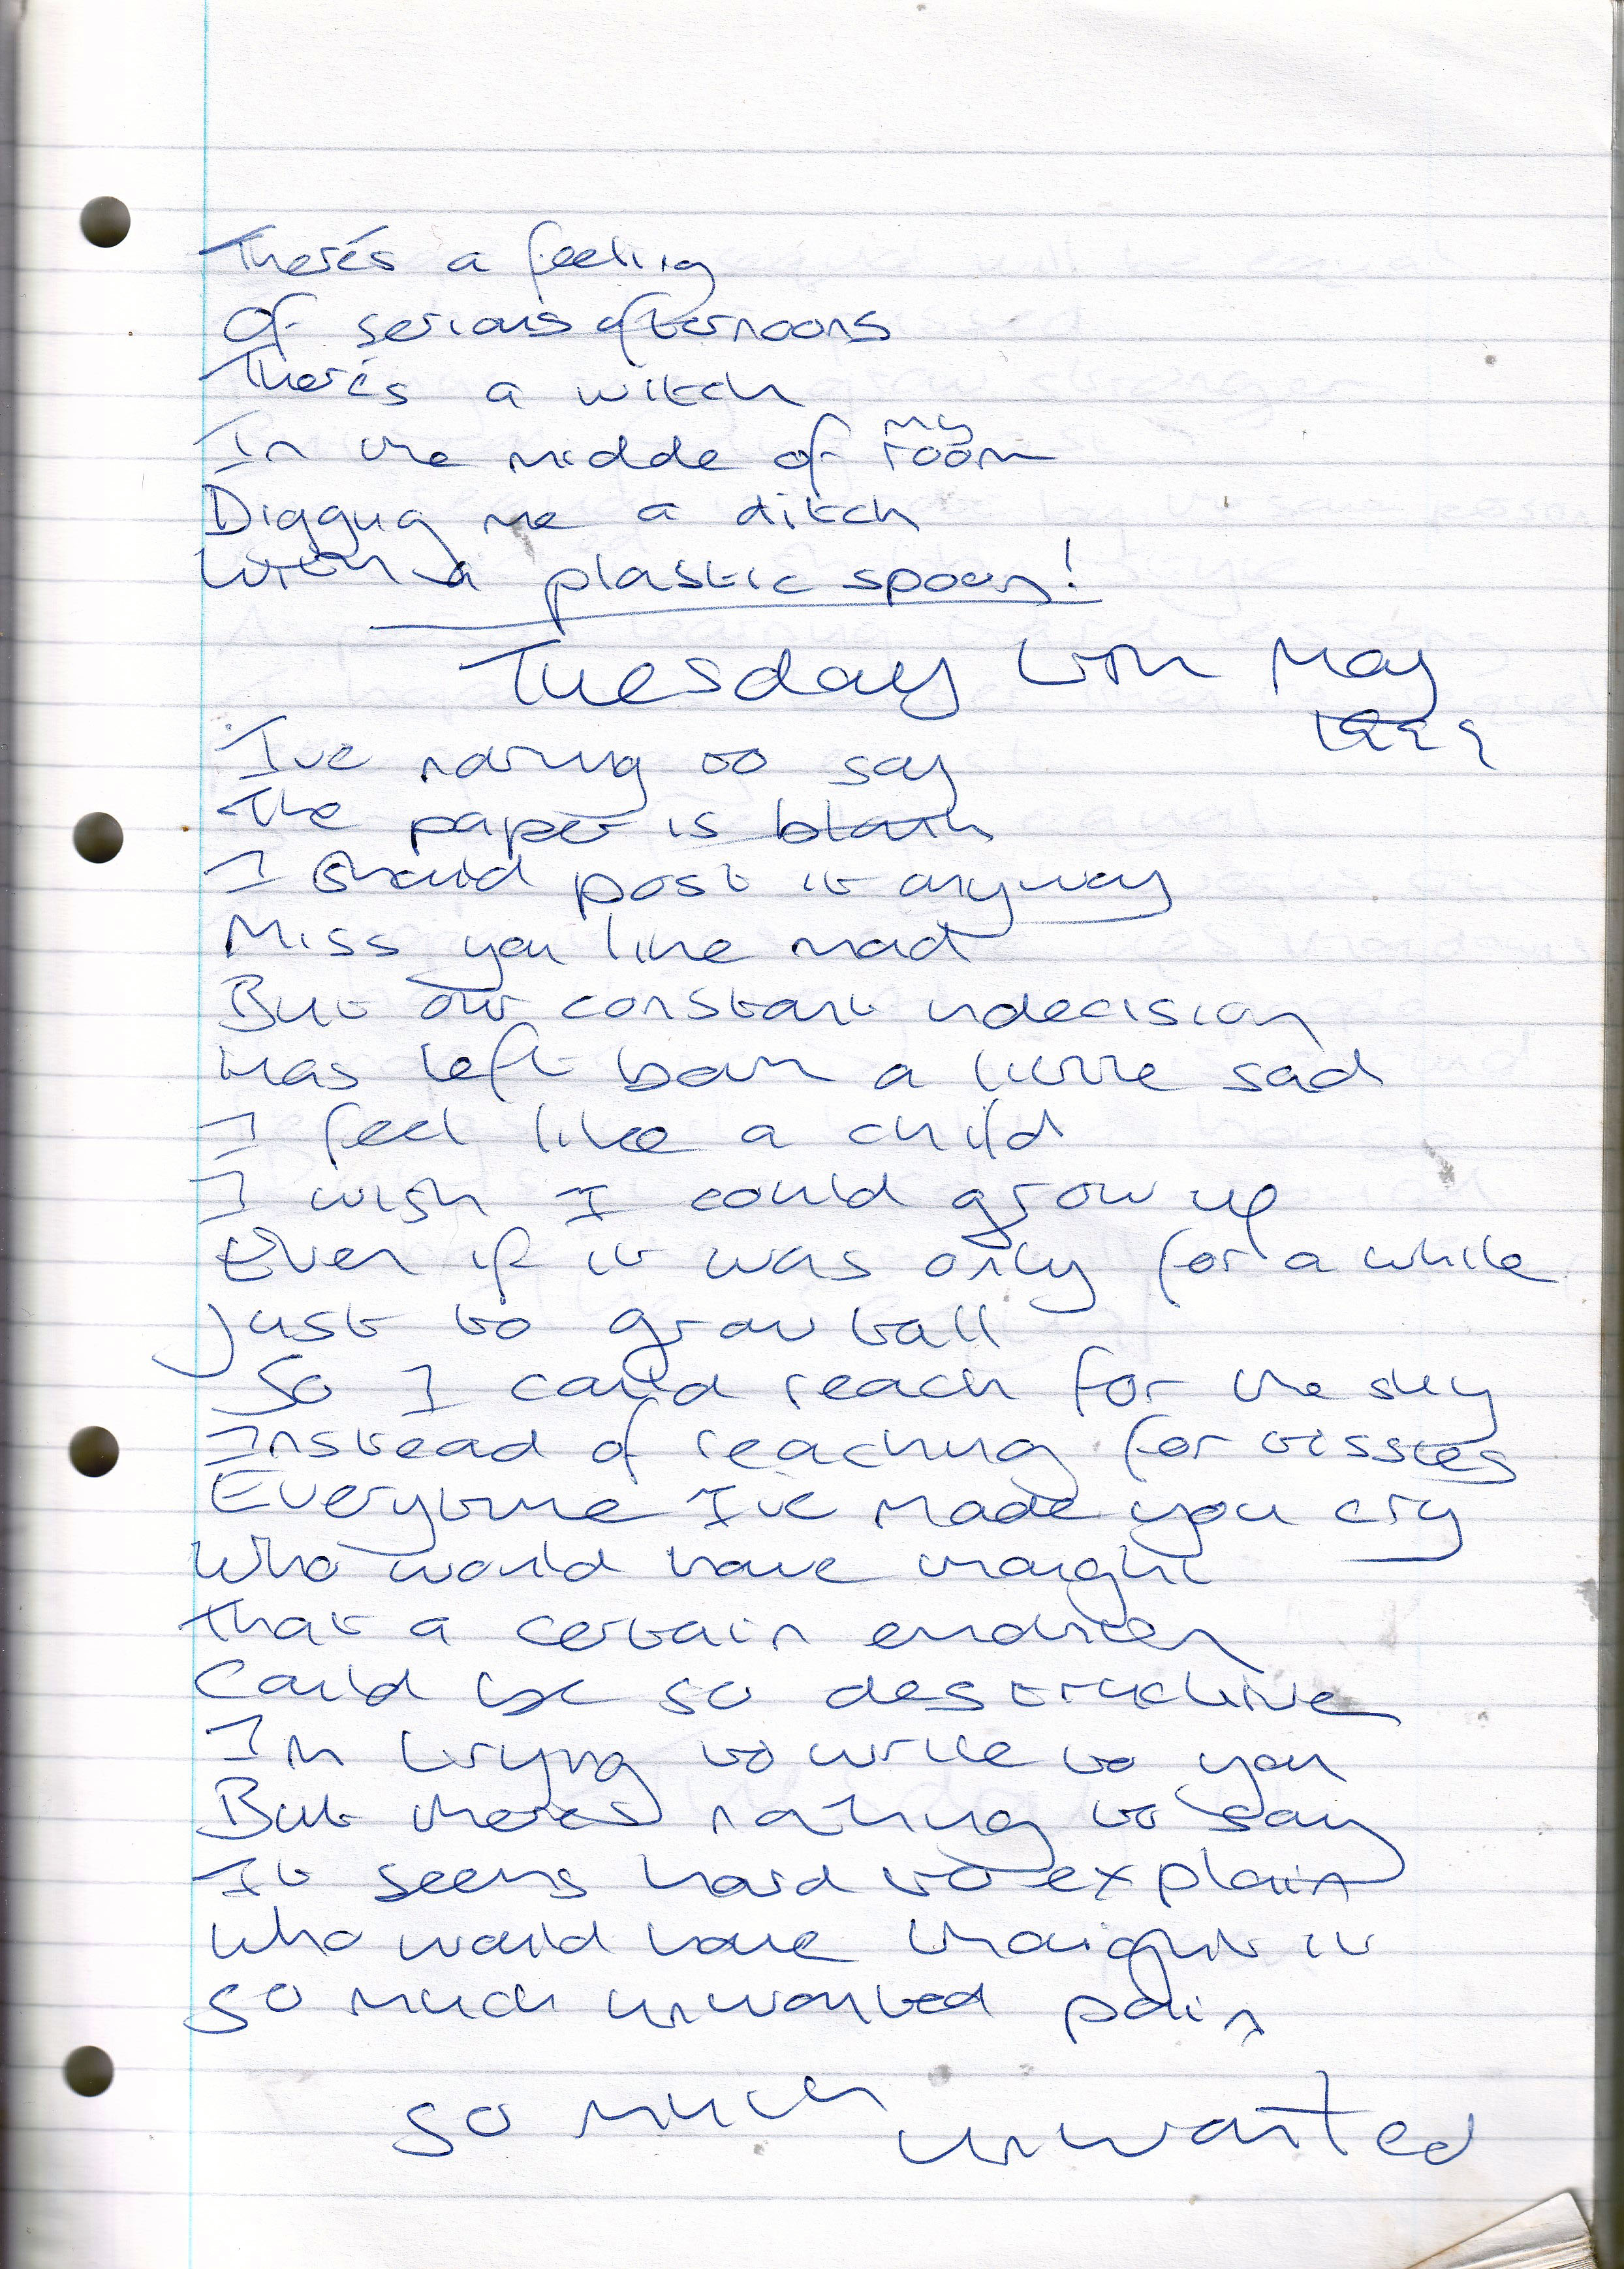 There's a feeling
Of serious afternoons
There's a witch
In the middle of my room
Digging me a ditch
With a plastic spoon!
Tuesday 4th May
1999
I've nothing to say
The paper is blank
I should post it anyway
Miss you like mad
But our constant indecision
Has left both a little sad
I feel like a child
I wish I could grow up
Even if it was only for a while
Just to grow tall
So I could reach for the sky
Instead of reaching for tissues
Everytime I've made you cry
Who would have thought
That a certain emotion
Could be so destructive
I'm trying to write to you
But there's nothing to say
It seems hard to explain
Who would have thought it
So much unwanted pain
So much unwanted